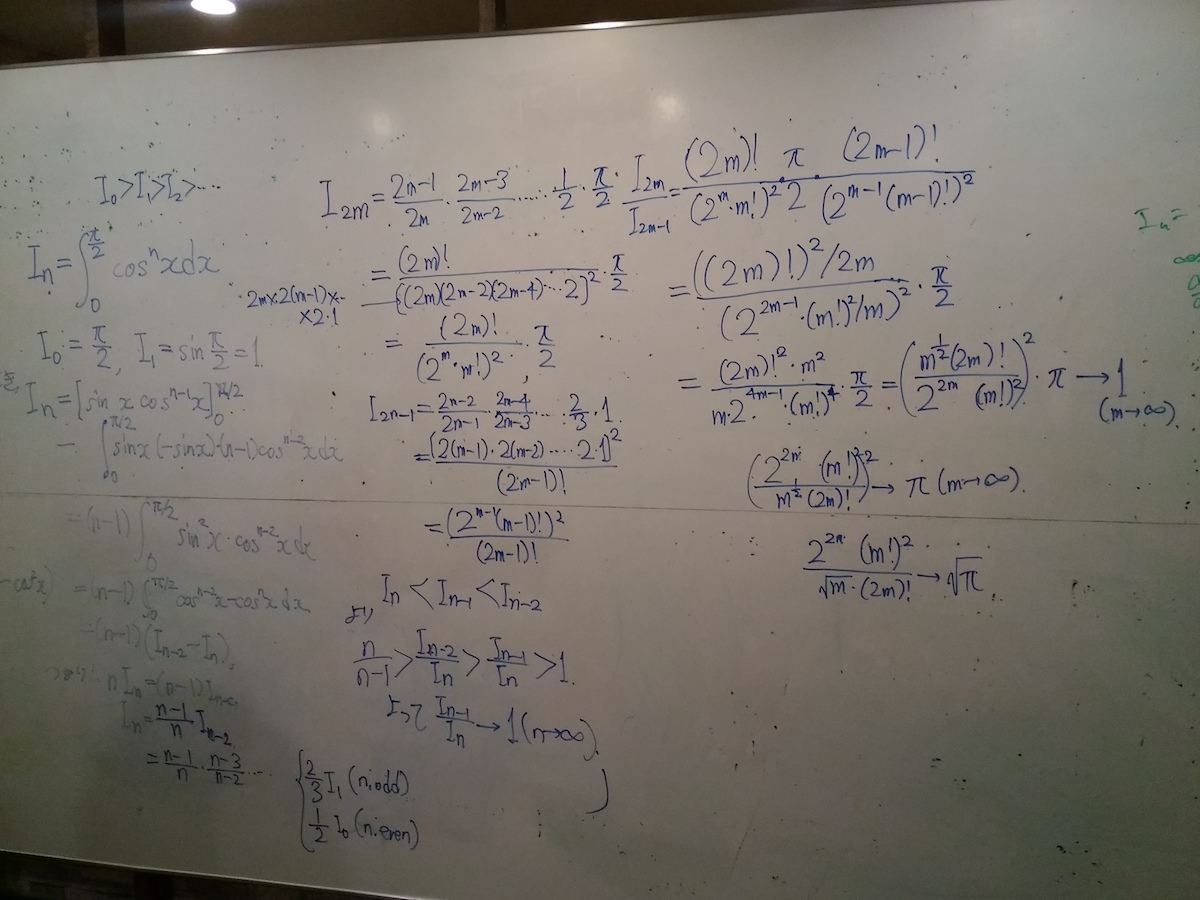 I₀ > I₁ > I₂ > ⋯
Iₙ = ∫₀^{π/2} cosⁿx dx
I₀ = π/2, I₁ = sin π/2 = 1
Iₙ = [sin x cosⁿ⁻¹x]₀^{π/2}
− ∫₀^{π/2} sin x (−sin x)·(n−1) cosⁿ⁻²x dx
= (n−1) ∫₀^{π/2} sin²x · cosⁿ⁻²x dx
−cos²x) = (n−1) ∫₀^{π/2} cosⁿ⁻²x − cosⁿx dx
= (n−1)(Iₙ₋₂ − Iₙ),
n Iₙ = (n−1) Iₙ₋₂
Iₙ = (n−1)/n Iₙ₋₂
= (n−1)/n · (n−3)/(n−2) ⋯ { 2/3 I₁ (n:odd)
1/2 I₀ (n:even)
I_{2m} = (2m−1)/(2m) · (2m−3)/(2m−2) ⋯ 1/2 · π/2
= (2m)!/{(2m)(2m−2)(2m−4)⋯2}² · π/2
2m×2(m−1)×⋯
×2·1
= (2m)!/(2^m·m!)² · π/2
I_{2m−1} = (2m−2)/(2m−1) · (2m−4)/(2m−3) ⋯ 2/3 · 1
= {2(m−1)·2(m−2)⋯2·1}²/(2m−1)!
= (2^{m−1}(m−1)!)²/(2m−1)!
Iₙ < Iₙ₋₁ < Iₙ₋₂
より
n/(n−1) > Iₙ₋₂/Iₙ > Iₙ₋₁/Iₙ > 1.
よって Iₙ₋₁/Iₙ → 1 (n→∞).
I_{2m}/I_{2m−1} = (2m)!/(2^m·m!)² · π/2 · (2m−1)!/(2^{m−1}(m−1)!)²
= ((2m)!)²/2m/(2^{2m−1}·(m!)²/m)² · π/2
= (2m)!²·m²/(m·2^{4m−1}·(m!)⁴) · π/2 = (m^{1/2}(2m)!/(2^{2m}(m!)²))² · π → 1
(m→∞)
(2^{2m}·(m!)²/(m^{1/2}(2m)!))² → π (m→∞).
2^{2m}(m!)²/(√m·(2m)!) → √π
Iₙ =